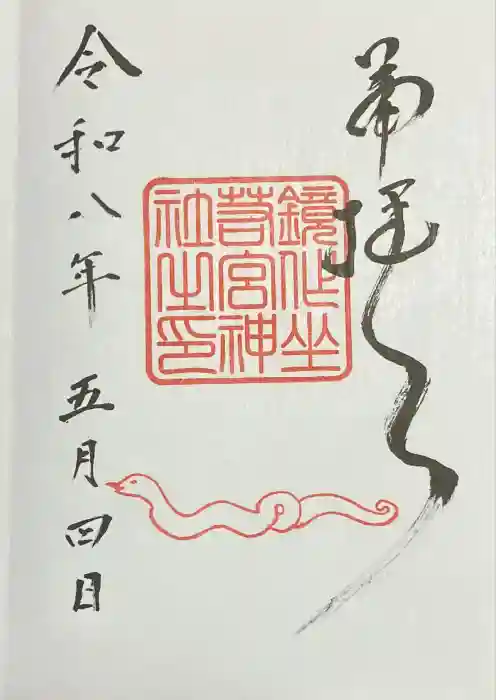 奉拝
鏡作坐
若宮神
社之印
令和八年 五月四日